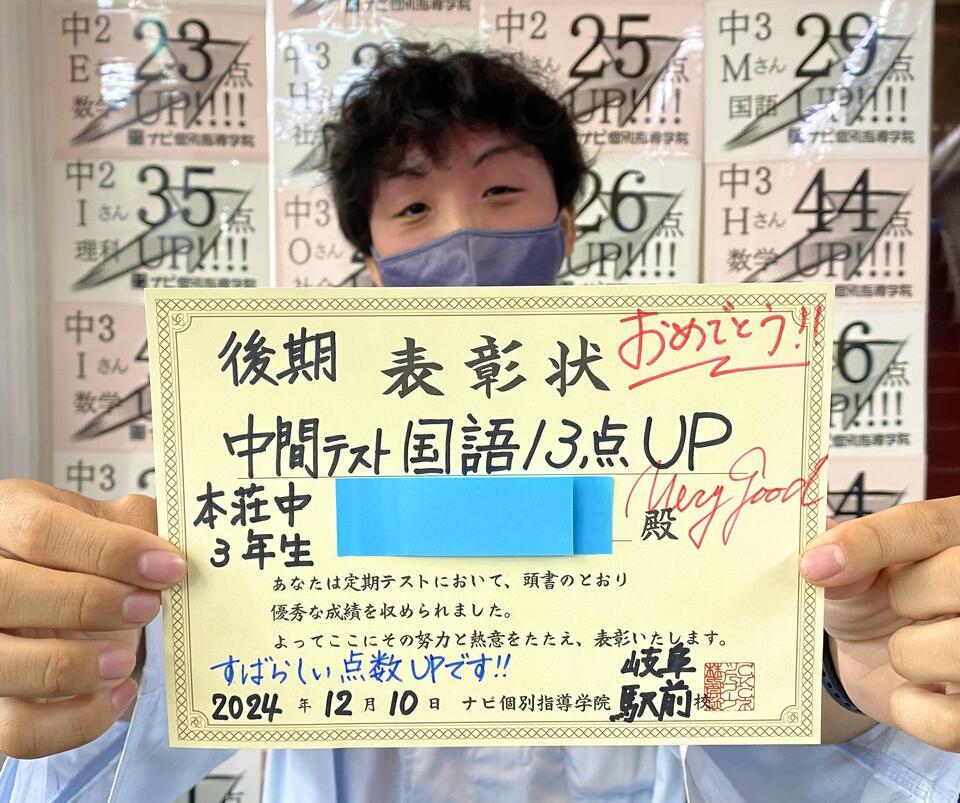 中2
Eさん
数学
23点
UP!!!!
ナビ個別指導学院
25点
UP!!!!
ナビ個別指導学院
中3
Mさん
国語
29点
UP!!!!
ナビ個別指導学院
中2
Iさん
理科
35点
UP!!!!
ナビ個別指導学院
中3
Oさん
26点
UP!!!!
中3
Hさん
数学
44点
UP!!!!
ナビ個別指導学院
中3
Iさん
数学
後期 表彰状 おめでとう!!
中間テスト国語13点UP
Very good
本荘中
3年生
殿
あなたは定期テストにおいて、頭書のとおり
優秀な成績を収められました。
よってここにその努力と熱意をたたえ、表彰いたします。
すばらしい点数UPです!!
2024年12月10日 ナビ個別指導学院 岐阜駅前校